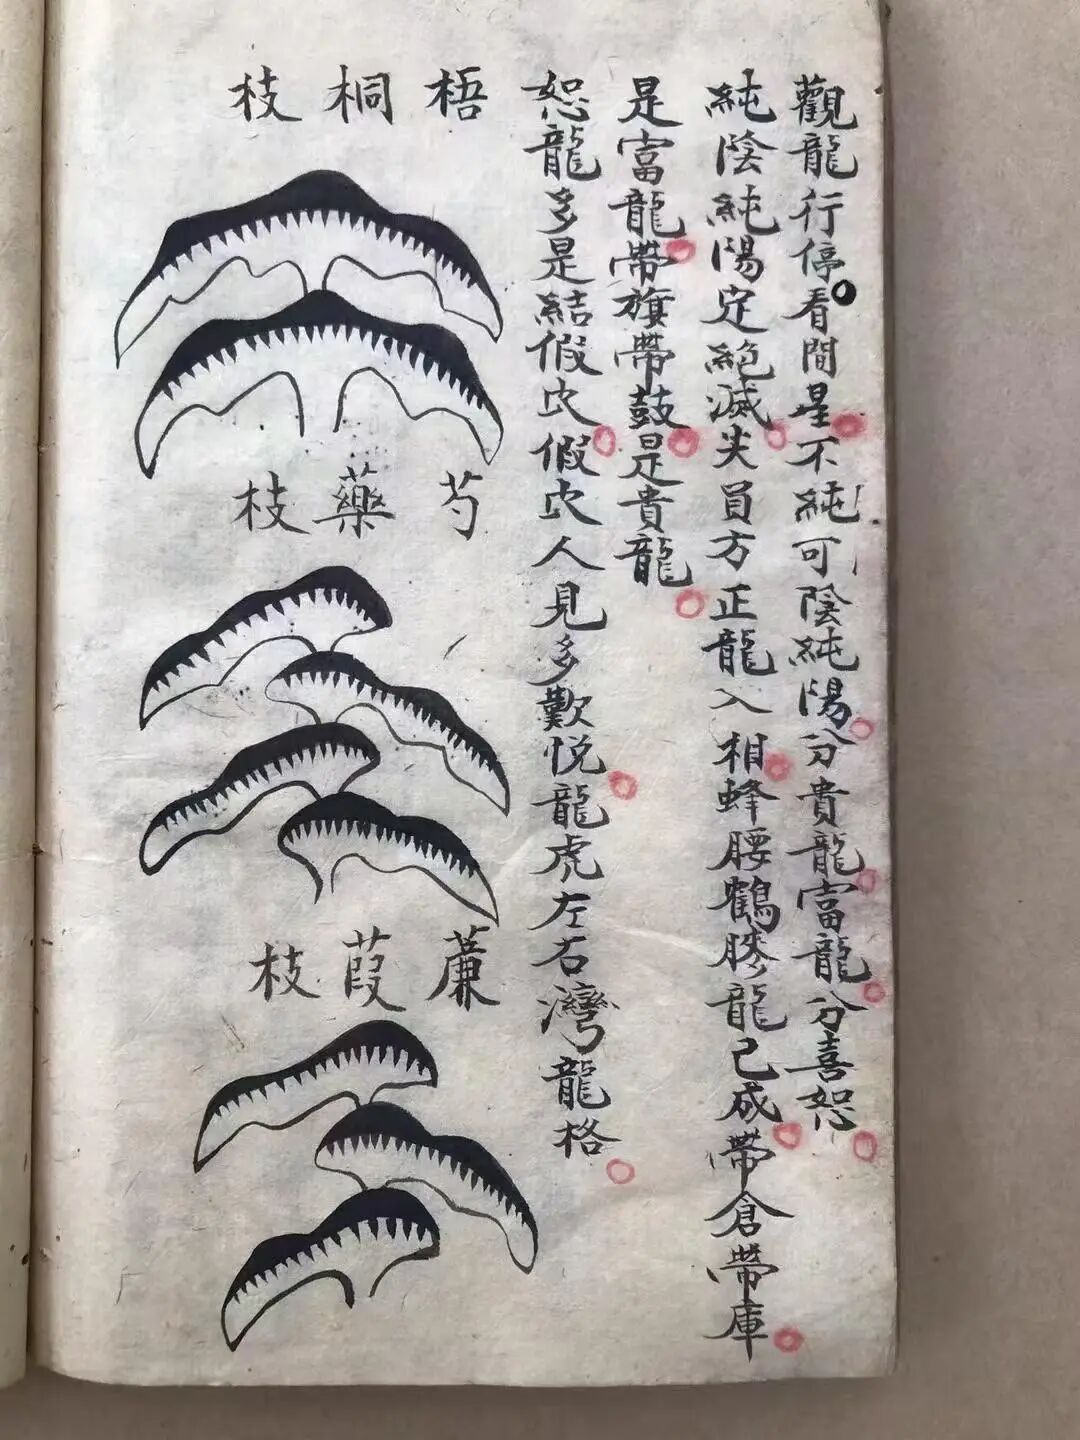 觀龍行停看間星不純可陰純陽分貴龍富龍分喜恕
純陰純陽定絕滅尖員方正龍入相蜂腰鶴膝龍已成帶倉帶庫
是富龍帶旗帶鼓是貴龍
恕龍多是結假穴假穴人見多歡悅龍虎左右灣龍格
梧桐枝
芍藥枝
蒹葭枝